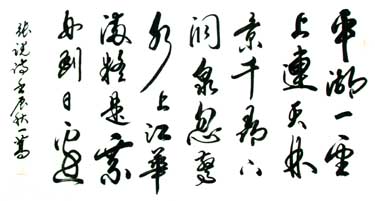 平湖一望
上連天林
景千尋下
洞泉忽驚
水上光華
滿疑是乘
舟到日邊
張説詩壬辰秋一